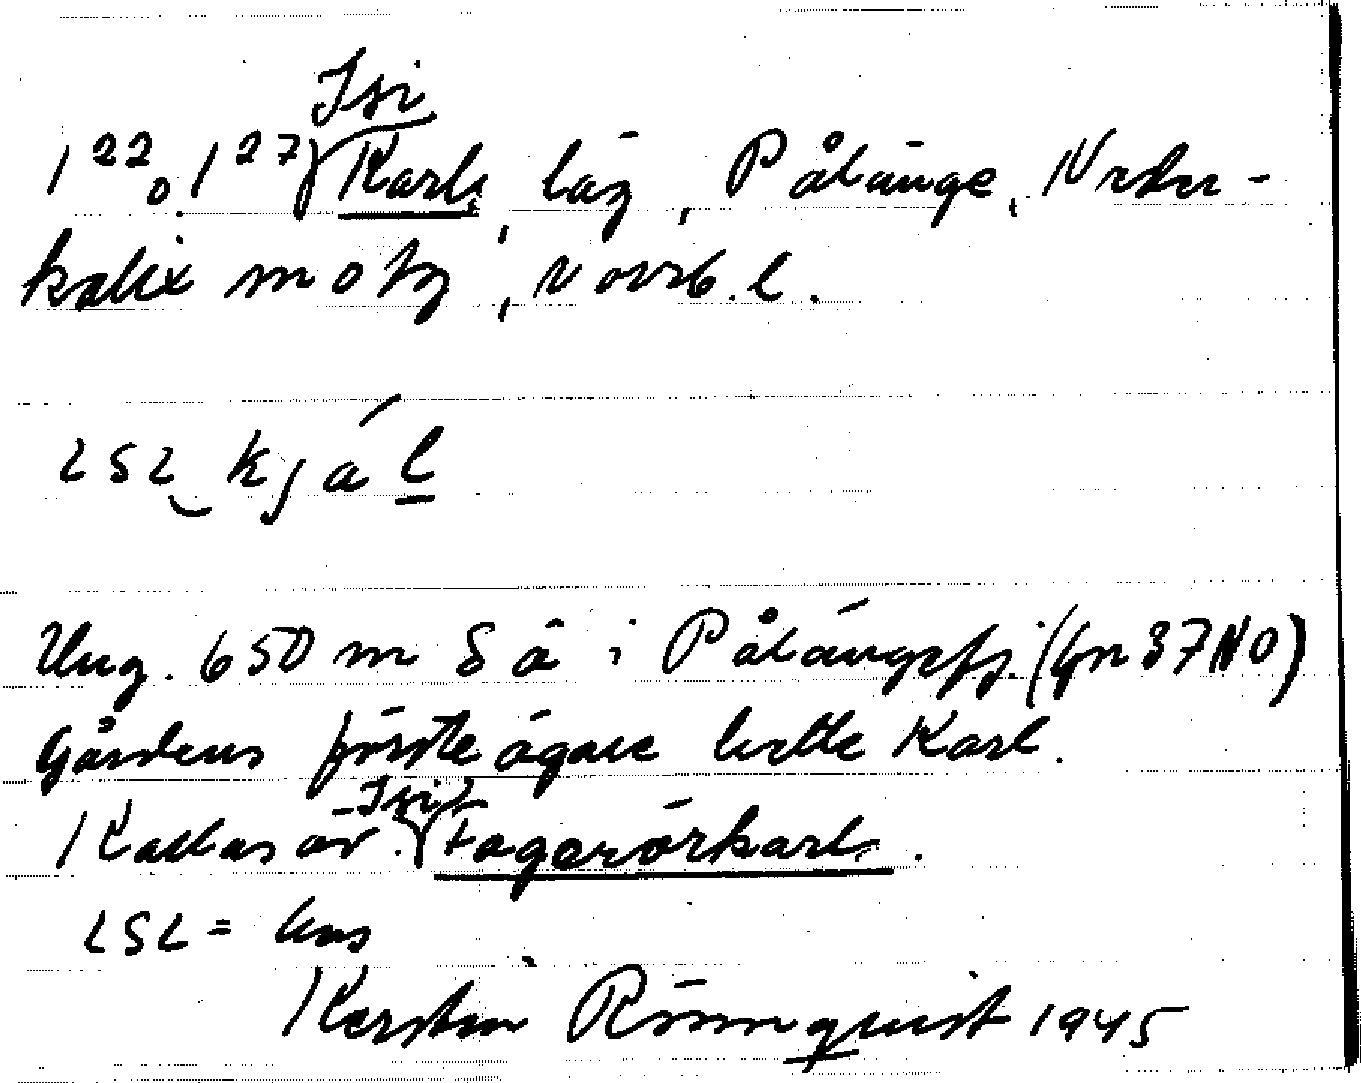 Isi
1²²o1²⁷) Karls, läg, Pålänge, Neder-
kalix mofg, Norrb. l.
Ung. 650 m S å i Pålängefj. (Gn 37NO)
Gårdens förste ägare hette Karl.
Kallas äv. Fagerörkarls.
= hus
Kerstin Rönnquist 1945